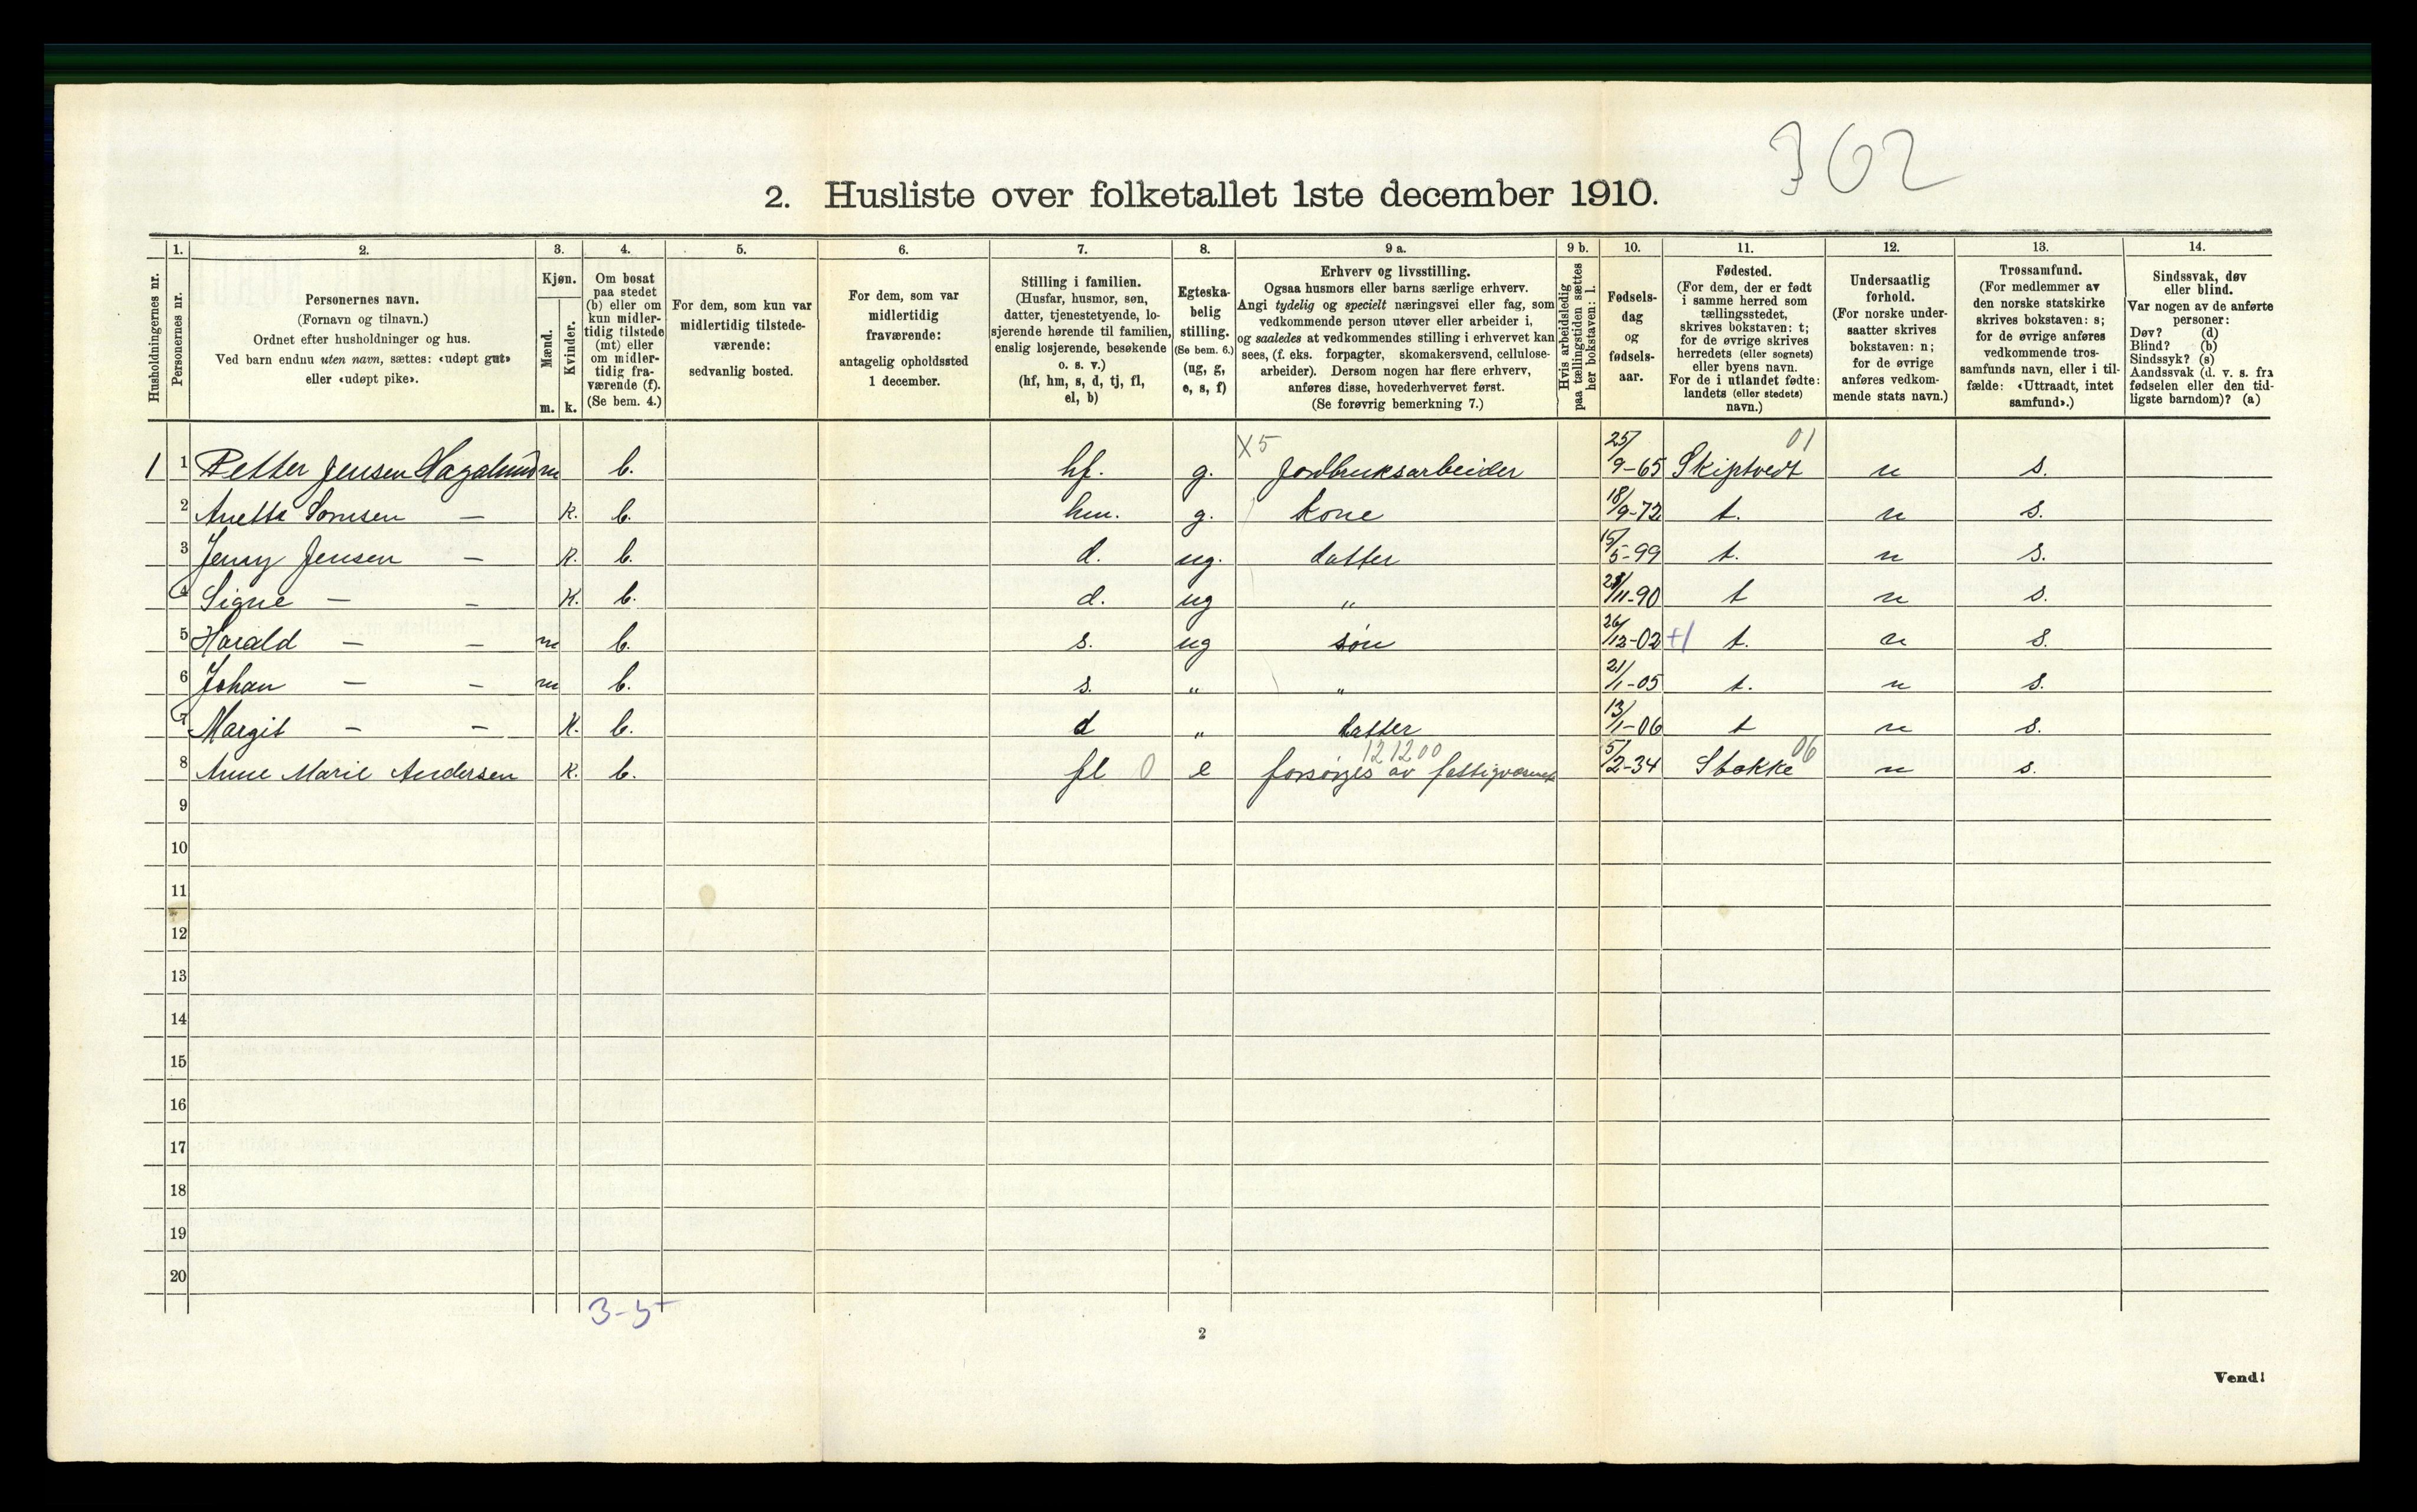 362
2. Husliste over folketallet 1ste december 1910.
Husholdningernes nr.
1.
Personernes nr.
2.
Personernes navn.
(Fornavn og tilnavn.)
Ordnet efter husholdninger og hus.
Ved barn endnu uten navn, sættes: «udøpt gut»
eller «udøpt pike».
3.
Kjøn.
Mænd.
Kvinder.
m. k.
4.
Om bosat
paa stedet
(b) eller om
kun midler-
tidig tilstede
(mt) eller
om midler-
tidig fra-
værende (f).
(Se bem. 4.)
5.
For dem, som kun var
midlertidig tilstede-
værende:
sedvanlig bosted.
6.
For dem, som var
midlertidig
fraværende:
antagelig opholdssted
1 december.
7.
Stilling i familien.
(Husfar, husmor, søn,
datter, tjenestetyende, lo-
sjerende hørende til familien,
enslig losjerende, besøkende
o. s. v.)
(hf, hm, s, d, tj, fl,
el, b)
8.
Egteska-
belig
stilling.
(Se bem. 6.)
(ug, g,
e, s, f)
9 a.
Erhverv og livsstilling.
Ogsaa husmors eller barns særlige erhverv.
Angi tydelig og specielt næringsvei eller fag, som
vedkommende person utøver eller arbeider i,
og saaledes at vedkommendes stilling i erhvervet kan
sees, (f. eks. forpagter, skomakersvend, cellulose-
arbeider). Dersom nogen har flere erhverv,
anføres disse, hovederhvervet først.
(Se forøvrig bemerkning 7.)
9 b.
Hvis arbeidsledig
paa tællingstiden sættes
her bokstaven: l.
10.
Fødsels-
dag
og
fødsels-
aar.
11.
Fødested.
(For dem, der er født
i samme herred som
tællingsstedet,
skrives bokstaven: t;
for de øvrige skrives
herredets (eller sognets)
eller byens navn.
For de i utlandet fødte:
landets (eller stedets)
navn.)
12.
Undersaatlig
forhold.
(For norske under-
saatter skrives
bokstaven: n;
for de øvrige
anføres vedkom-
mende stats navn.)
13.
Trossamfund.
(For medlemmer av
den norske statskirke
skrives bokstaven: s;
for de øvrige anføres
vedkommende tros-
samfunds navn, eller i til-
fælde: «Uttraadt, intet
samfund».)
14.
Sindssvak, døv
eller blind.
Var nogen av de anførte
personer:
Døv? (d)
Blind? (b)
Sindssyk? (s)
Aandssvak (d. v. s. fra
fødselen eller den tid-
ligste barndom)? (a)
X5 01
1 1 Petter Jensen Hagalund m b. hf. g. Jordbruksarbeider 25/9-65 Skiptvedt n s.
2 Anetta — K. b. hm. g. kone 18/9-72 t. n s.
3 Jenny Jensen — K. b. d. ug. datter 15/5-99 t. n s.
4 Signe — — K. b. d. ug " /11-90 t n s.
5 Harald — — m b. s. ug søn 26/12-02 +1 t. n s.
6 Johan — — m b. s. " " 21/1-05 t. n s.
7 Margit — — K. b. d " datter 13/1-06 t n s.
121200 06
8 Anne Marie Andersen K. b. fl 0 e forsørges av fattigvæsenet 5/2-34 Stokke n s.
9
10
11
12
13
14
15
16
17
18
19
20
3-5
2
Vend!